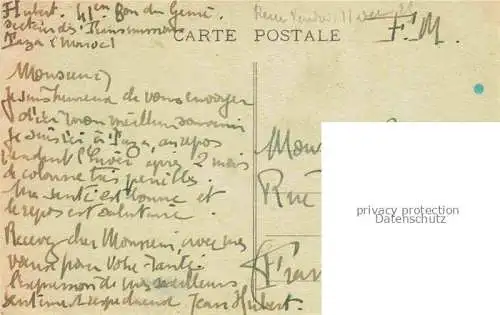 Hubert. 41em Bon du Génie.
secteur des Transmissions
Taza (Maroc)
CARTE POSTALE
F.M.
Monsieur,
Je suis heureux de vous envoyer
d'ici mon meilleur souvenir
Je suis ici à Taza, au repos
pendant l'hiver après 2 mois
de colonne très pénibles.
Ma santé est bonne et
le repos est salutaire.
Recevez cher Monsieur, avec mes
vœux pour votre santé
l'expression de mes meilleurs
sentiments respectueux Jean Hubert.
Mons
Rue
Fran
privacy protection
Datenschutz